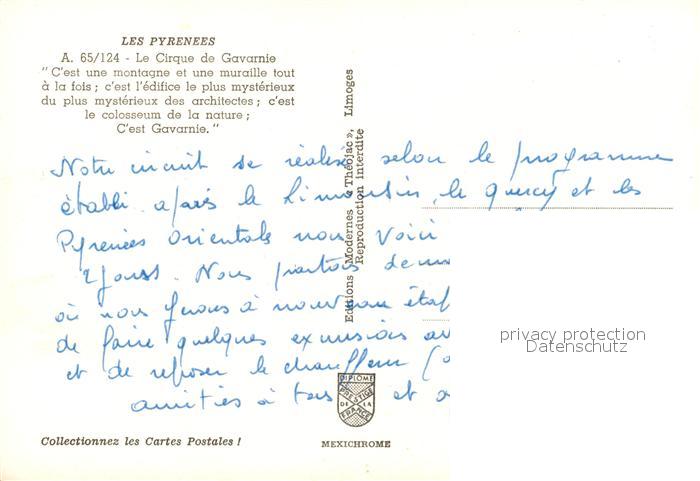 LES PYRENEES
A. 65/124 - Le Cirque de Gavarnie
" C'est une montagne et une muraille tout
à la fois ; c'est l'édifice le plus mystérieux
du plus mystérieux des architectes ; c'est
le colosseum de la nature ;
C'est Gavarnie. "
Notre circuit se réalise selon le programme
établi. après le Limousin, le quercy et les
Pyrénées Orientales nous voici
Nous partons
où nous à nouveau
de faire quelques excursions
et de reposer le chauffeur
amitiés à tous et
Editions Modernes « Théojac », Limoges
Reproduction Interdite
privacy protection
Datenschutz
DIPLOME
PRESTIGE
DE LA
FRANCE
Collectionnez les Cartes Postales !
MEXICHROME